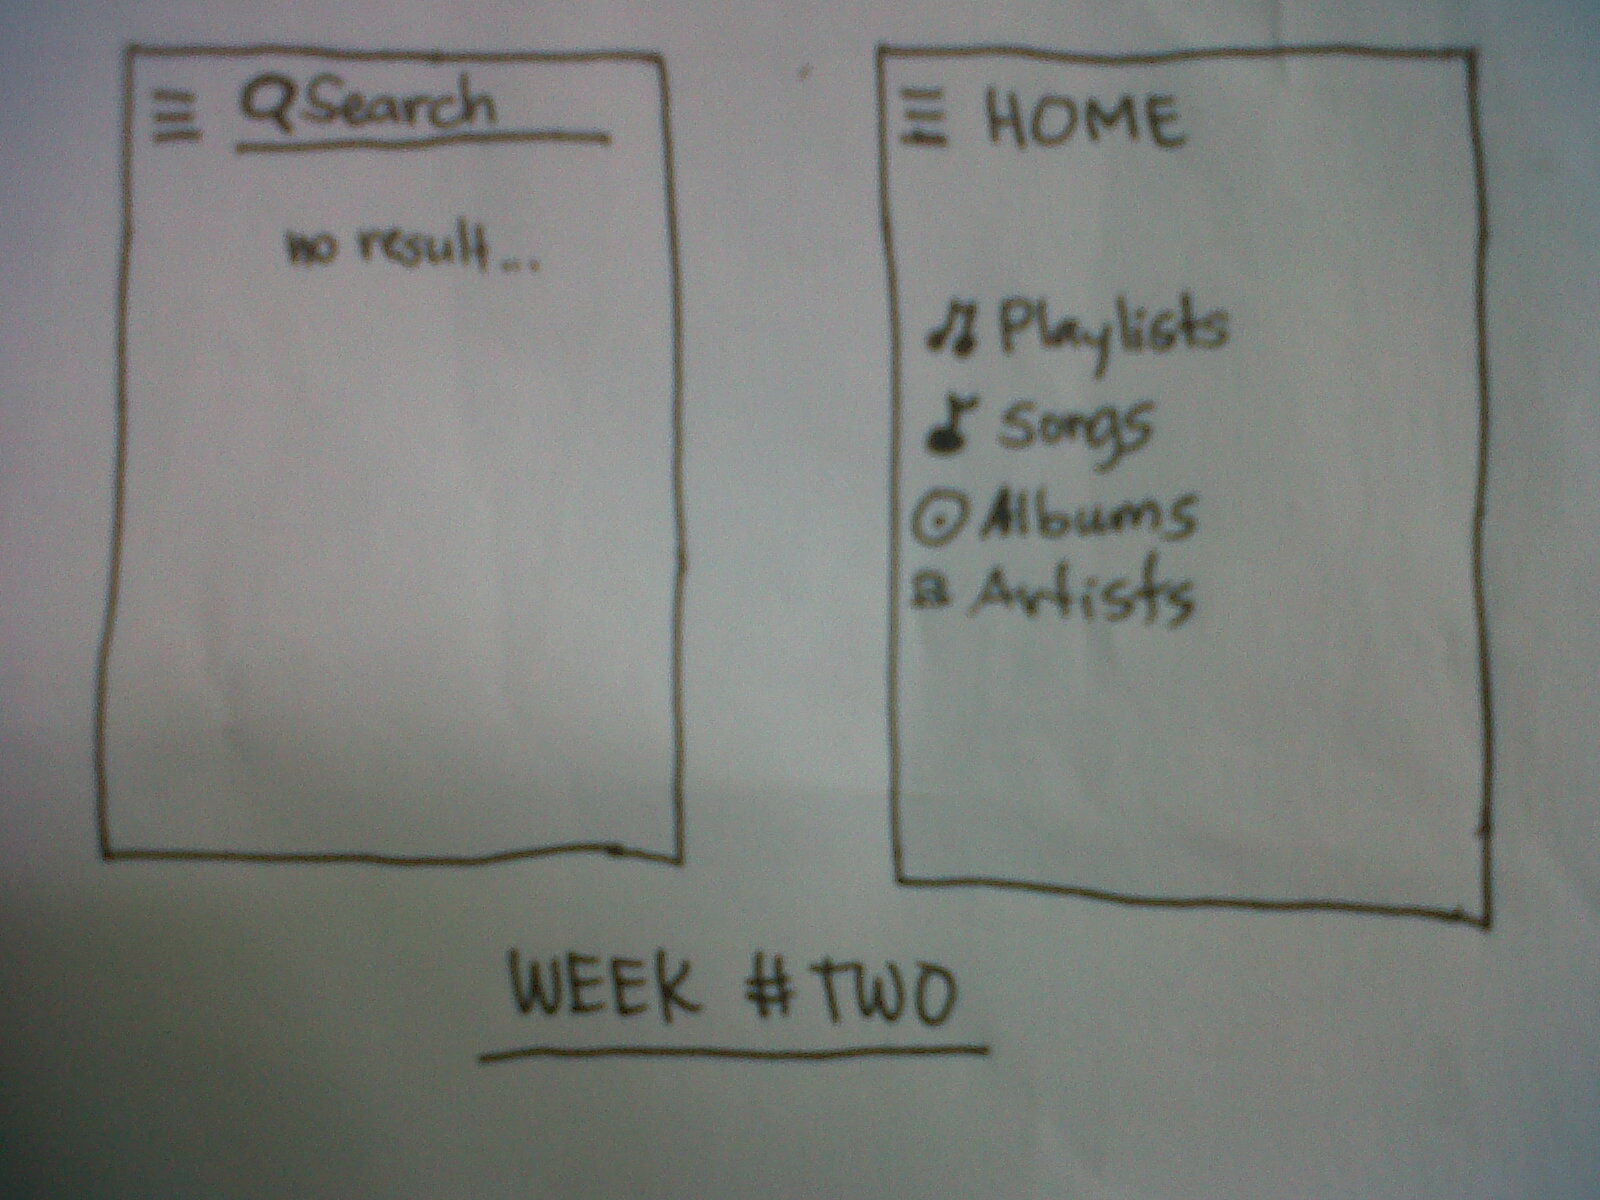 Search
no result...
HOME
Playlists
Songs
Albums
Artists
WEEK #TWO